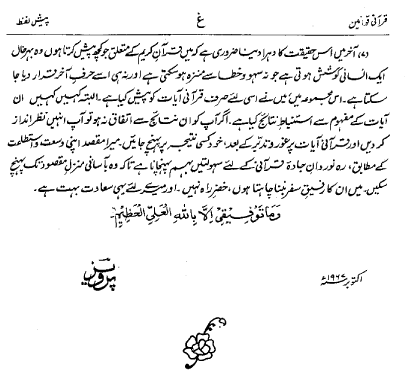 قرآنی قوانین غ پیش لفظ
(۵) آخر میں اس حقیقت کا دہرا دینا ضروری ہے کہ میں قرآن کریم کے متعلق جو کچھ پیش کرتا ہوں وہ بہرحال
ایک انسانی کوشش ہوتی ہے جو نہ سہو و خطا سے منزہ ہو سکتی ہے اور نہ ہی اسے حرفِ آخر قرار دیا جا
سکتا ہے۔ اس مجموعہ میں میں نے اسی لئے صرف قرآنی آیات کو پیش کیا ہے۔ البتہ کہیں کہیں ان
آیات کے مفہوم سے استنباطِ نتائج کیا ہے۔ اگر آپ کو ان نتائج سے اتفاق نہ ہو تو آپ انہیں نظر انداز
کر دیں اور قرآنی آیات پر غور و تدبر کے بعد، خود کسی نتیجہ پر پہنچ جائیں۔ میرا مقصد اپنی وسعت و استطاعت
کے مطابق، رہ نوردانِ جادۂ قرآنی کے لئے سہولتیں بہم پہنچانا ہے تاکہ وہ بآسانی منزلِ مقصود تک پہنچ
سکیں۔ میں ان کا رفیقِ سفر بننا چاہتا ہوں، خضرِ راہ نہیں۔ اور میرے لئے یہی سعادت بہت ہے۔
وَمَا تَوْفِیْقِیْ اِلَّا بِاللّٰہِ الْعَلِیِّ الْعَظِیْمِ۔
پرویز
اکتوبر ۱۹۶۷ء